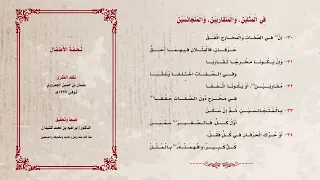 في المثلين، والمتقاربين، والمتجانسين
٣٠- إِنْ فِي الصِّفَاتِ وَالمَخَارِجِ اتَّفَقْ
حَرْفَانِ فَالْمِثْلَانِ فِيهِمَا أَحَقْ
٣١- وَإِنْ يَكُونَا مَخْرَجًا تَقَارَبَا
وَفِي الصِّفَاتِ اخْتَلَفَا يُلَقَّبَا
٣٢- مُتَقَارِبَيْنِ، أَوْ يَكُونَا اتَّفَقَا
فِي مَخْرَجٍ دُونَ الصِّفَاتِ حُقِّقَا
٣٣- بِالْمُتَجَانِسَيْنِ ثُمَّ إِنْ سَكَنْ
أَوَّلُ كُلٍّ فَالصَّغِيرَ سَمِّيَنْ
٣٤- أَوْ حُرِّكَ الْحَرْفَانِ فِي كُلٍّ فَقُلْ
كُلٌّ كَبِيرٌ وَافْهَمَنْهُ بِالْمُثُلْ
تحفة الأطفال
نظم المقرئ
سليمان بن حسين الجمزوري
(توفي ١٢٢٧هـ)
ضبط وتحقيق
الدكتور إبراهيم بن محمد كشيدان